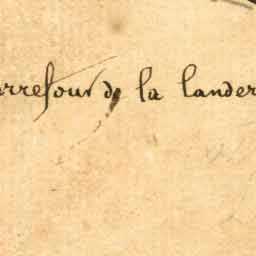 arrefour de la lander